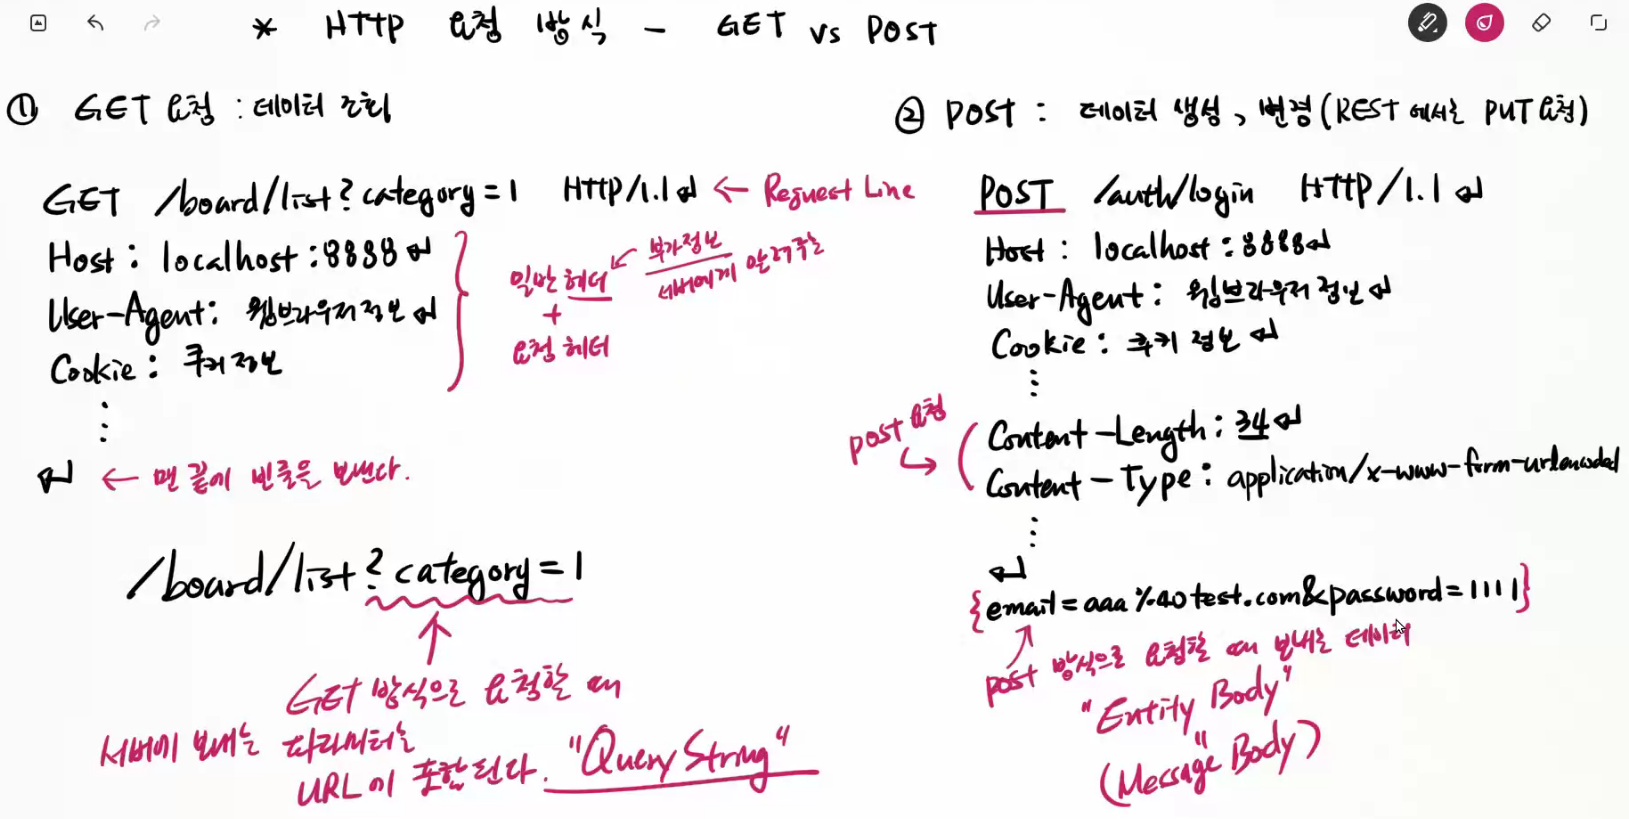 * HTTP 요청 방식 - GET vs POST
① GET 요청 : 데이터 조회
GET /board/list?category=1 HTTP/1.1↵ ← Request Line
Host : localhost:8888↵
User-Agent: 웹브라우저 정보↵
Cookie : 쿠키 정보
⋮
일반 헤더 ← 부가정보 서버에게 알려주는
+
요청 헤더
↵ ← 맨 끝에 빈줄을 보낸다.
/board/list?category=1
↑
GET 방식으로 요청할 때
서버에 보내는 파라미터는
URL에 포함된다. "Query String"
② POST : 데이터 생성, 변경(REST에서는 PUT 요청)
POST /auth/login HTTP/1.1↵
Host : localhost:8888↵
User-Agent : 웹브라우저 정보↵
Cookie : 쿠키 정보↵
⋮
post 요청
Content-Length : 34↵
Content-Type : application/x-www-form-urlencoded
⋮
↵
{email=aaa%40test.com&password=1111}
post 방식으로 요청할 때 보내는 데이터
"Entity Body"
"
(Message Body)